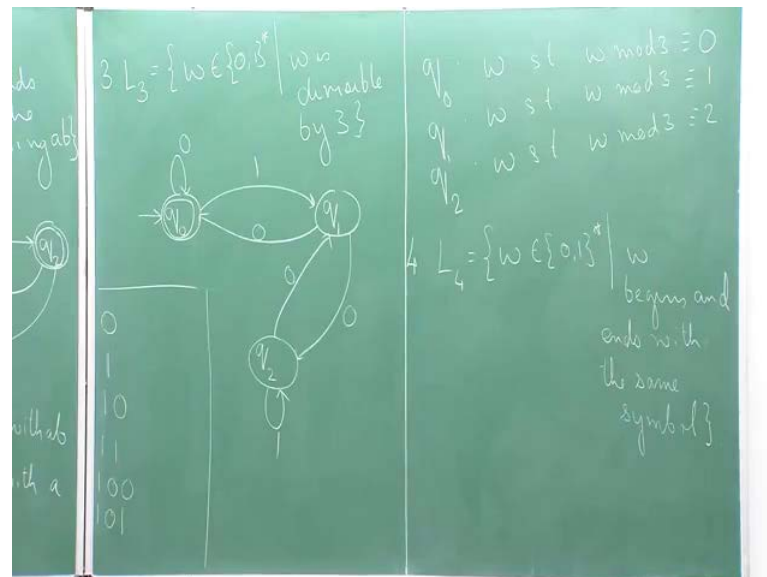 ds
he
ing ab}
q₂
with ab
with a
3 L₃ = {w ∈ {0,1}* | w is
divisible
by 3}
0
1
q₀
q₁
0
0
0
q₂
1
0
1
10
11
100
101
q₀ : w st w mod 3 ≡ 0
q₁ : w st w mod 3 ≡ 1
q₂ : w st w mod 3 ≡ 2
4 L₄ = {w ∈ {0,1}* | w
begins and
ends with
the same
symbol}